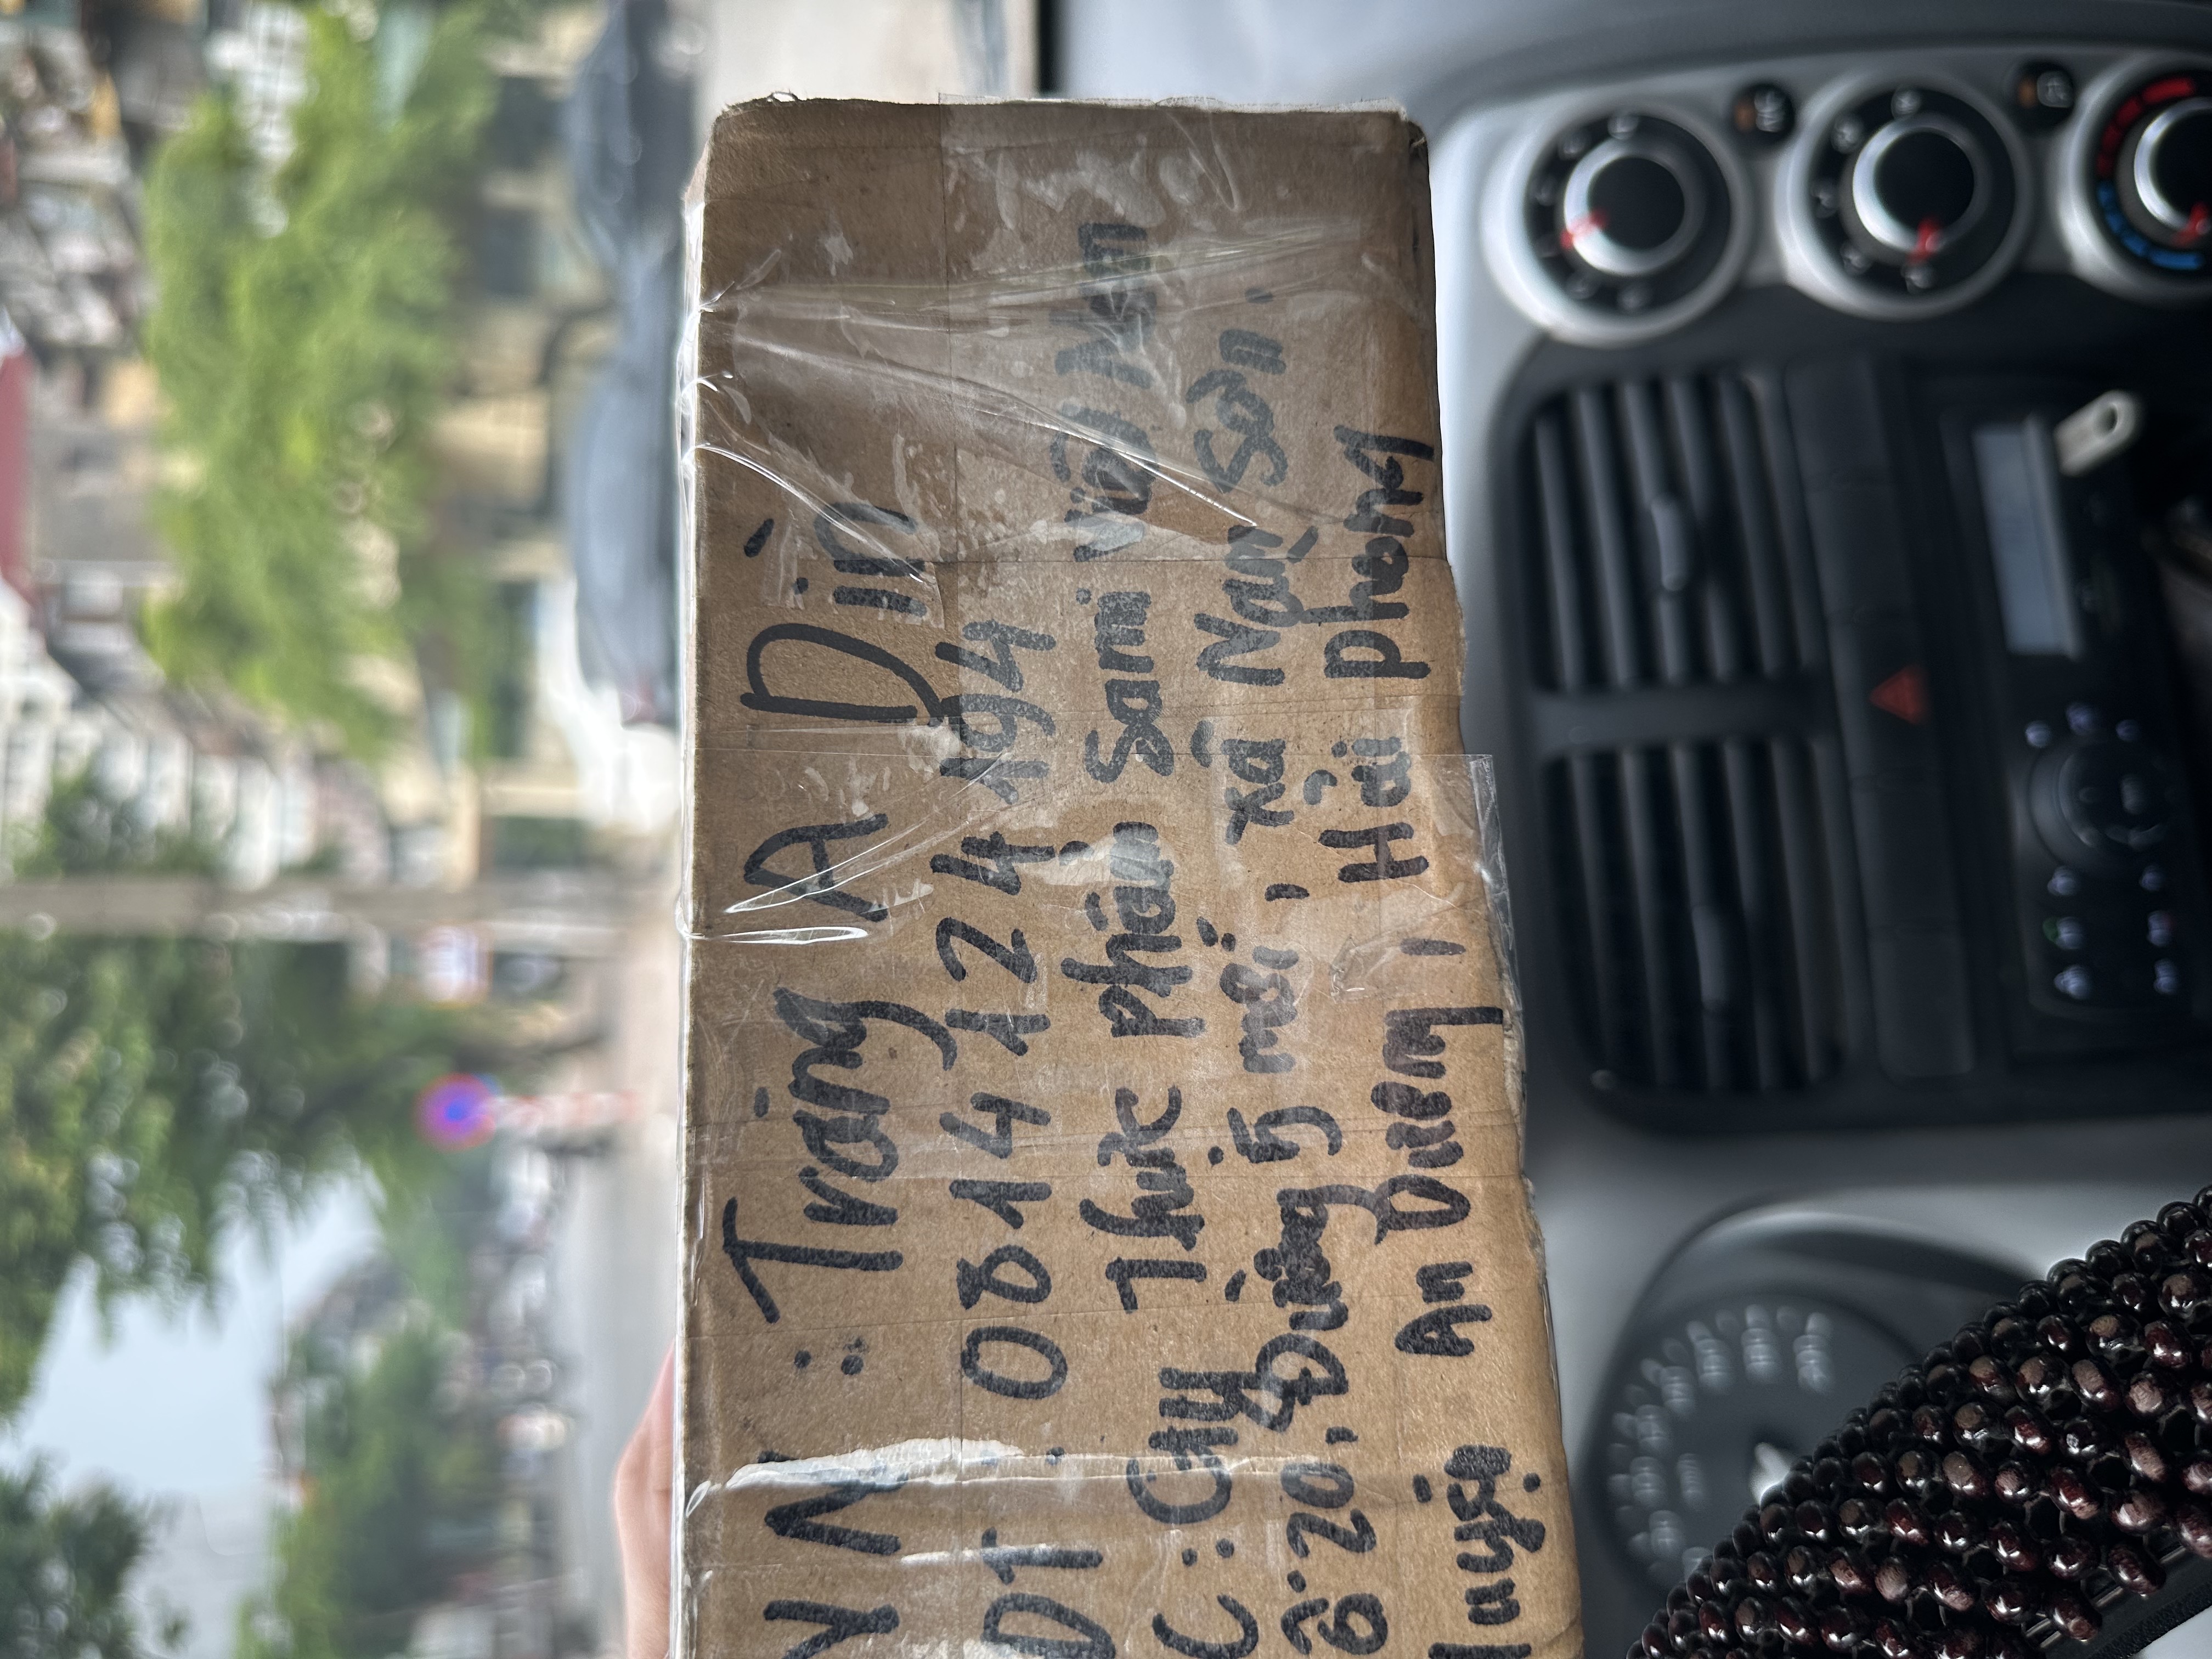 N : Tráng A Dìn
ĐT : 0814124194
C : CTY Thức phẩm Sami Việt Nam
Ô 20, Đường 5 mới, xã Nam Sơn,
Huyện An Dương, Hải phòng